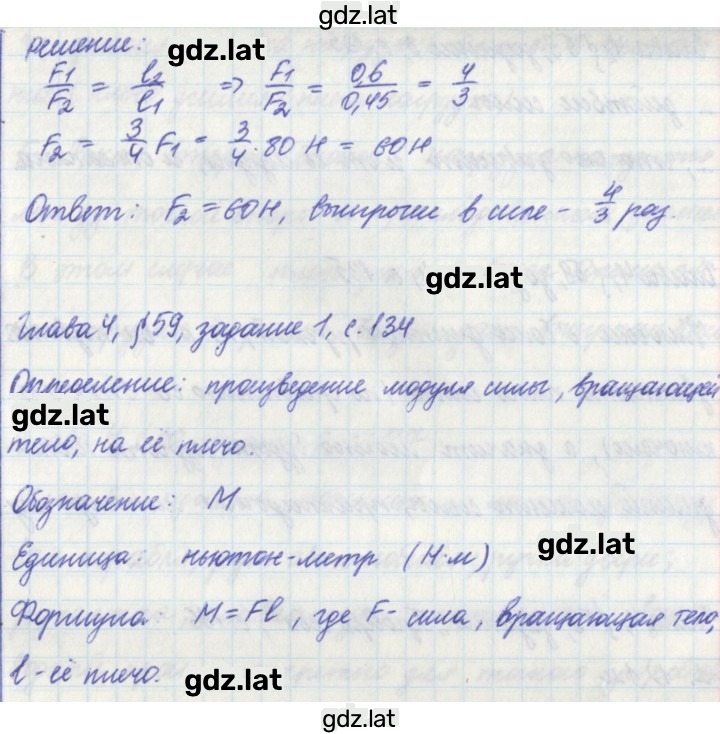 gdz.lat
решение:
gdz.lat
F1/F2 = l2/l1 => F1/F2 = 0,6/0,45 = 4/3
F2 = 3/4 F1 = 3/4 · 80 Н = 60Н
Ответ: F2 = 60Н, выигрыш в силе - 4/3 раз.
gdz.lat
Глава 4, §59, задание 1, с. 134
Определение: произведение модуля силы, вращающей
gdz.lat
тело, на её плечо.
Обозначение: М
gdz.lat
Единица ньютон-метр (Н·м)
Формула М = Fl, где F - сила, вращающая тело,
l - её плечо.
gdz.lat
gdz.lat